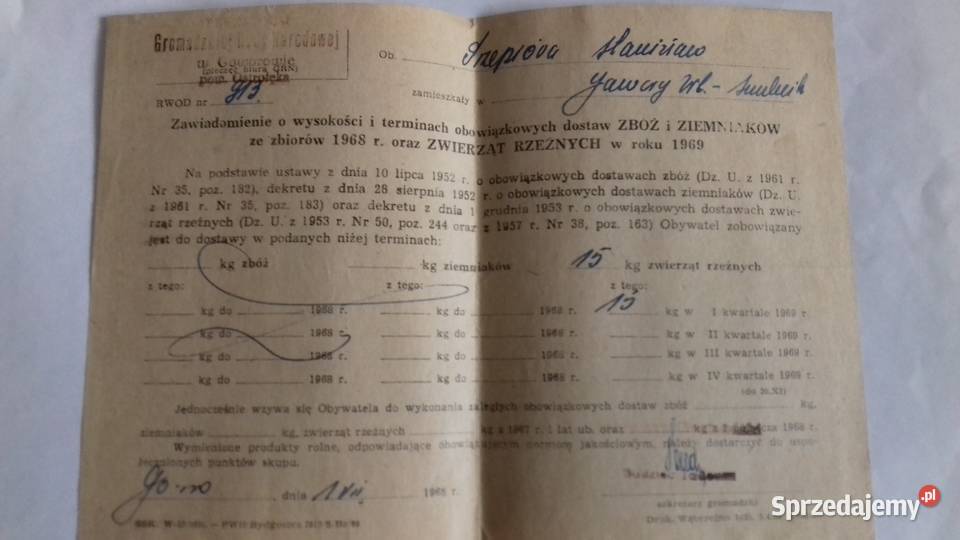 Gromadzkiej Rady Narodowej
w Goworowie
(pieczęć biura GRN)
pow. Ostrołęka
Ob.
RWOD nr 913
zamieszkały w
Zawiadomienie o wysokości i terminach obowiązkowych dostaw ZBÓŻ i ZIEMNIAKÓW
ze zbiorów 1968 r. oraz ZWIERZĄT RZEŹNYCH w roku 1969
Na podstawie ustawy z dnia 10 lipca 1952 r. o obowiązkowych dostawach zbóż (Dz. U. z 1961 r.
Nr 35, poz. 182), dekretu z dnia 28 sierpnia 1952 r. o obowiązkowych dostawach ziemniaków (Dz. U.
z 1961 r. Nr 35, poz. 183) oraz dekretu z dnia 1 grudnia 1953 r. o obowiązkowych dostawach zwie-
rząt rzeźnych (Dz. U. z 1953 r. Nr 50, poz. 244 oraz z 1957 r. Nr 38, poz. 163) Obywatel zobowiązany
jest do dostawy w podanych niżej terminach:
kg zbóż kg ziemniaków 15 kg zwierząt rzeźnych
z tego: z tego: z tego:
kg do 1968 r. kg do 1968 r. 15 kg w I kwartale 1969 r.
kg do 1968 r. kg do 1968 r. kg w II kwartale 1969 r.
kg do 1968 r. kg do 1968 r. kg w III kwartale 1969 r.
kg do 1968 r. kg do 1968 r. kg w IV kwartale 1969 r.
(do 20.XI)
Jednocześnie wzywa się Obywatela do wykonania zaległych obowiązkowych dostaw zbóż kg,
ziemniaków kg, zwierząt rzeźnych kg z 1967 r. i lat ub. oraz kg z I 1968 r.
Wymienione produkty rolne, odpowiadające obowiązującym normom jakościowym, należy dostarczyć do uspo-
łecznionych punktów skupu.
dnia 1 VII 1968 r.
sekretarz gromadzki
Sprzedajemy.pl